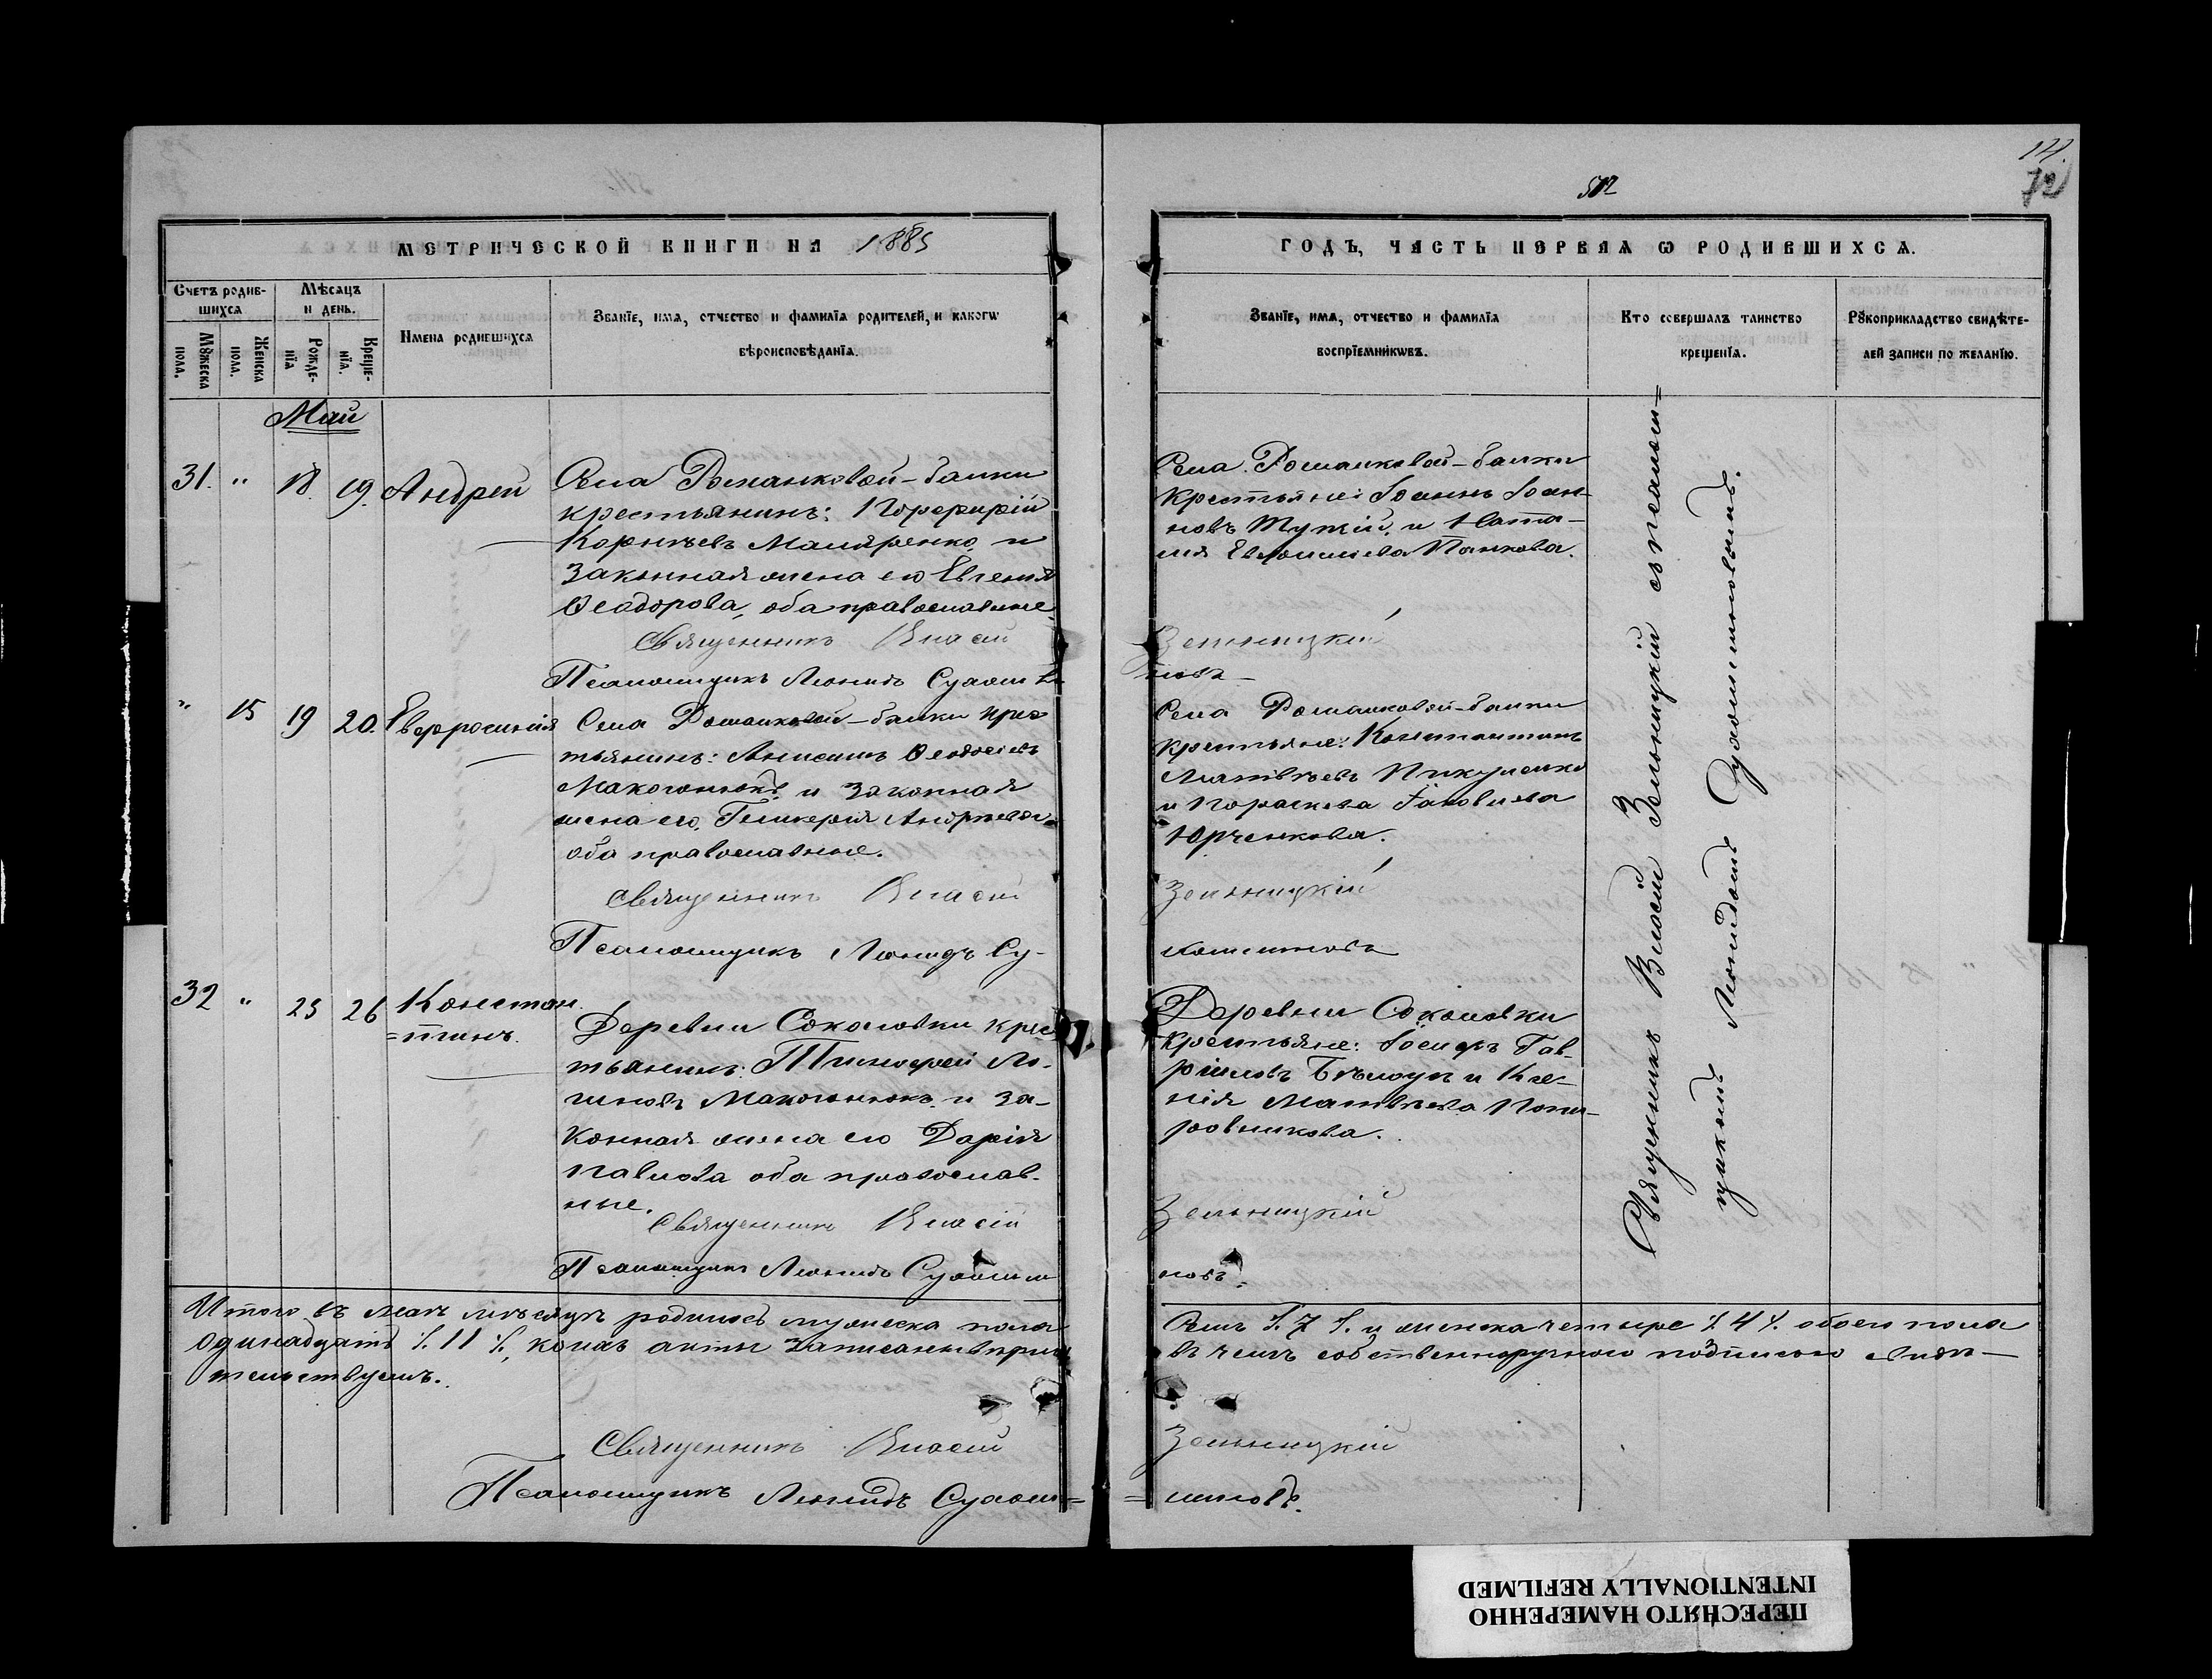 14.
72
512
МЕТРИЧЕСКОЙ КНИГИ НА 1885
ГОДЪ, ЧАСТЬ ПЕРВАЯ Ѡ РОДИВШИХСѦ.
Счетъ родив-
шихсѧ
Мѣсѧцъ
и день.
Мꙋжеска
пола.
Женска
пола.
Рожде-
нїѧ
Креще-
нїѧ.
Имена родившихсѧ
Званїе, имѧ, отчество и фамилїѧ родителей, и какогѡ
вѣроисповѣданїѧ.
Званїе, имѧ, отчество и фамилїѧ
воспрїемникѡвъ.
Кто совершалъ таинство
крещенїѧ.
Рꙋкоприкладство свидѣте-
лей записи по желанїю.
Май
31. " 18. 19. Андрей
Села Романковой-балки
крестьянинъ: Порфирій
Корнѣевъ Маляренко, и
законная жена его Евгенія
Ѳеодорова, оба православные
Священникъ Власій
Псаломщикъ Леонидъ Сухом
Села Романковой-балки
крестьяне: Іоаннъ Іоан-
новъ и Ната-
лія Панкова.
Зельницкій
новъ
" 15 19 20. Евфросинія
Села Романковой-балки крес
тьянинъ: Анисимъ Ѳеодосіевъ
Макогонюкъ, и законная
жена его, Гликерія Андреева
оба православные.
Священникъ Власій
Псаломщикъ Леонидъ Су-
Села Романковой-балки
крестьяне: Константинъ
Матвѣевъ Пикуленко
и Параскева Іаковлева
Юрченкова.
Зельницкій
хомлиновъ
32 " 25 26 Констан
=тинъ.
Деревни Соколовки крес
тьянинъ: Тимофей Ло-
гиновъ Макогонюкъ, и за-
конная жена его Дарія
Павлова оба православ-
ные.
Священникъ Власій
Псаломщикъ Леонидъ Сухомли
Деревни Соколовки
крестьяне: Іосифъ Гав-
ріиловъ и Ксе-
нія Матвѣева
Зельницкій
новъ.
Священникъ Власій Зельницкій съ псалом=
щикомъ Леонидомъ Сухомлиновымъ.
Итого въ маѣ мѣсяцѣ родилось мужеска пола
одинадцать ./. 11 ./., коихъ акты записаны
тельствуемъ.
Семь ./. 7 ./. и женска четыре ./. 4 ./. обоего пола
въ чемъ собственноручною подписью свидѣ-
Священникъ Власій
Зельницкій
Псаломщикъ Леонидъ Сухом=
=линовъ.
ПЕРЕСНЯТО НАМЕРЕННО
INTENTIONALLY REFILMED